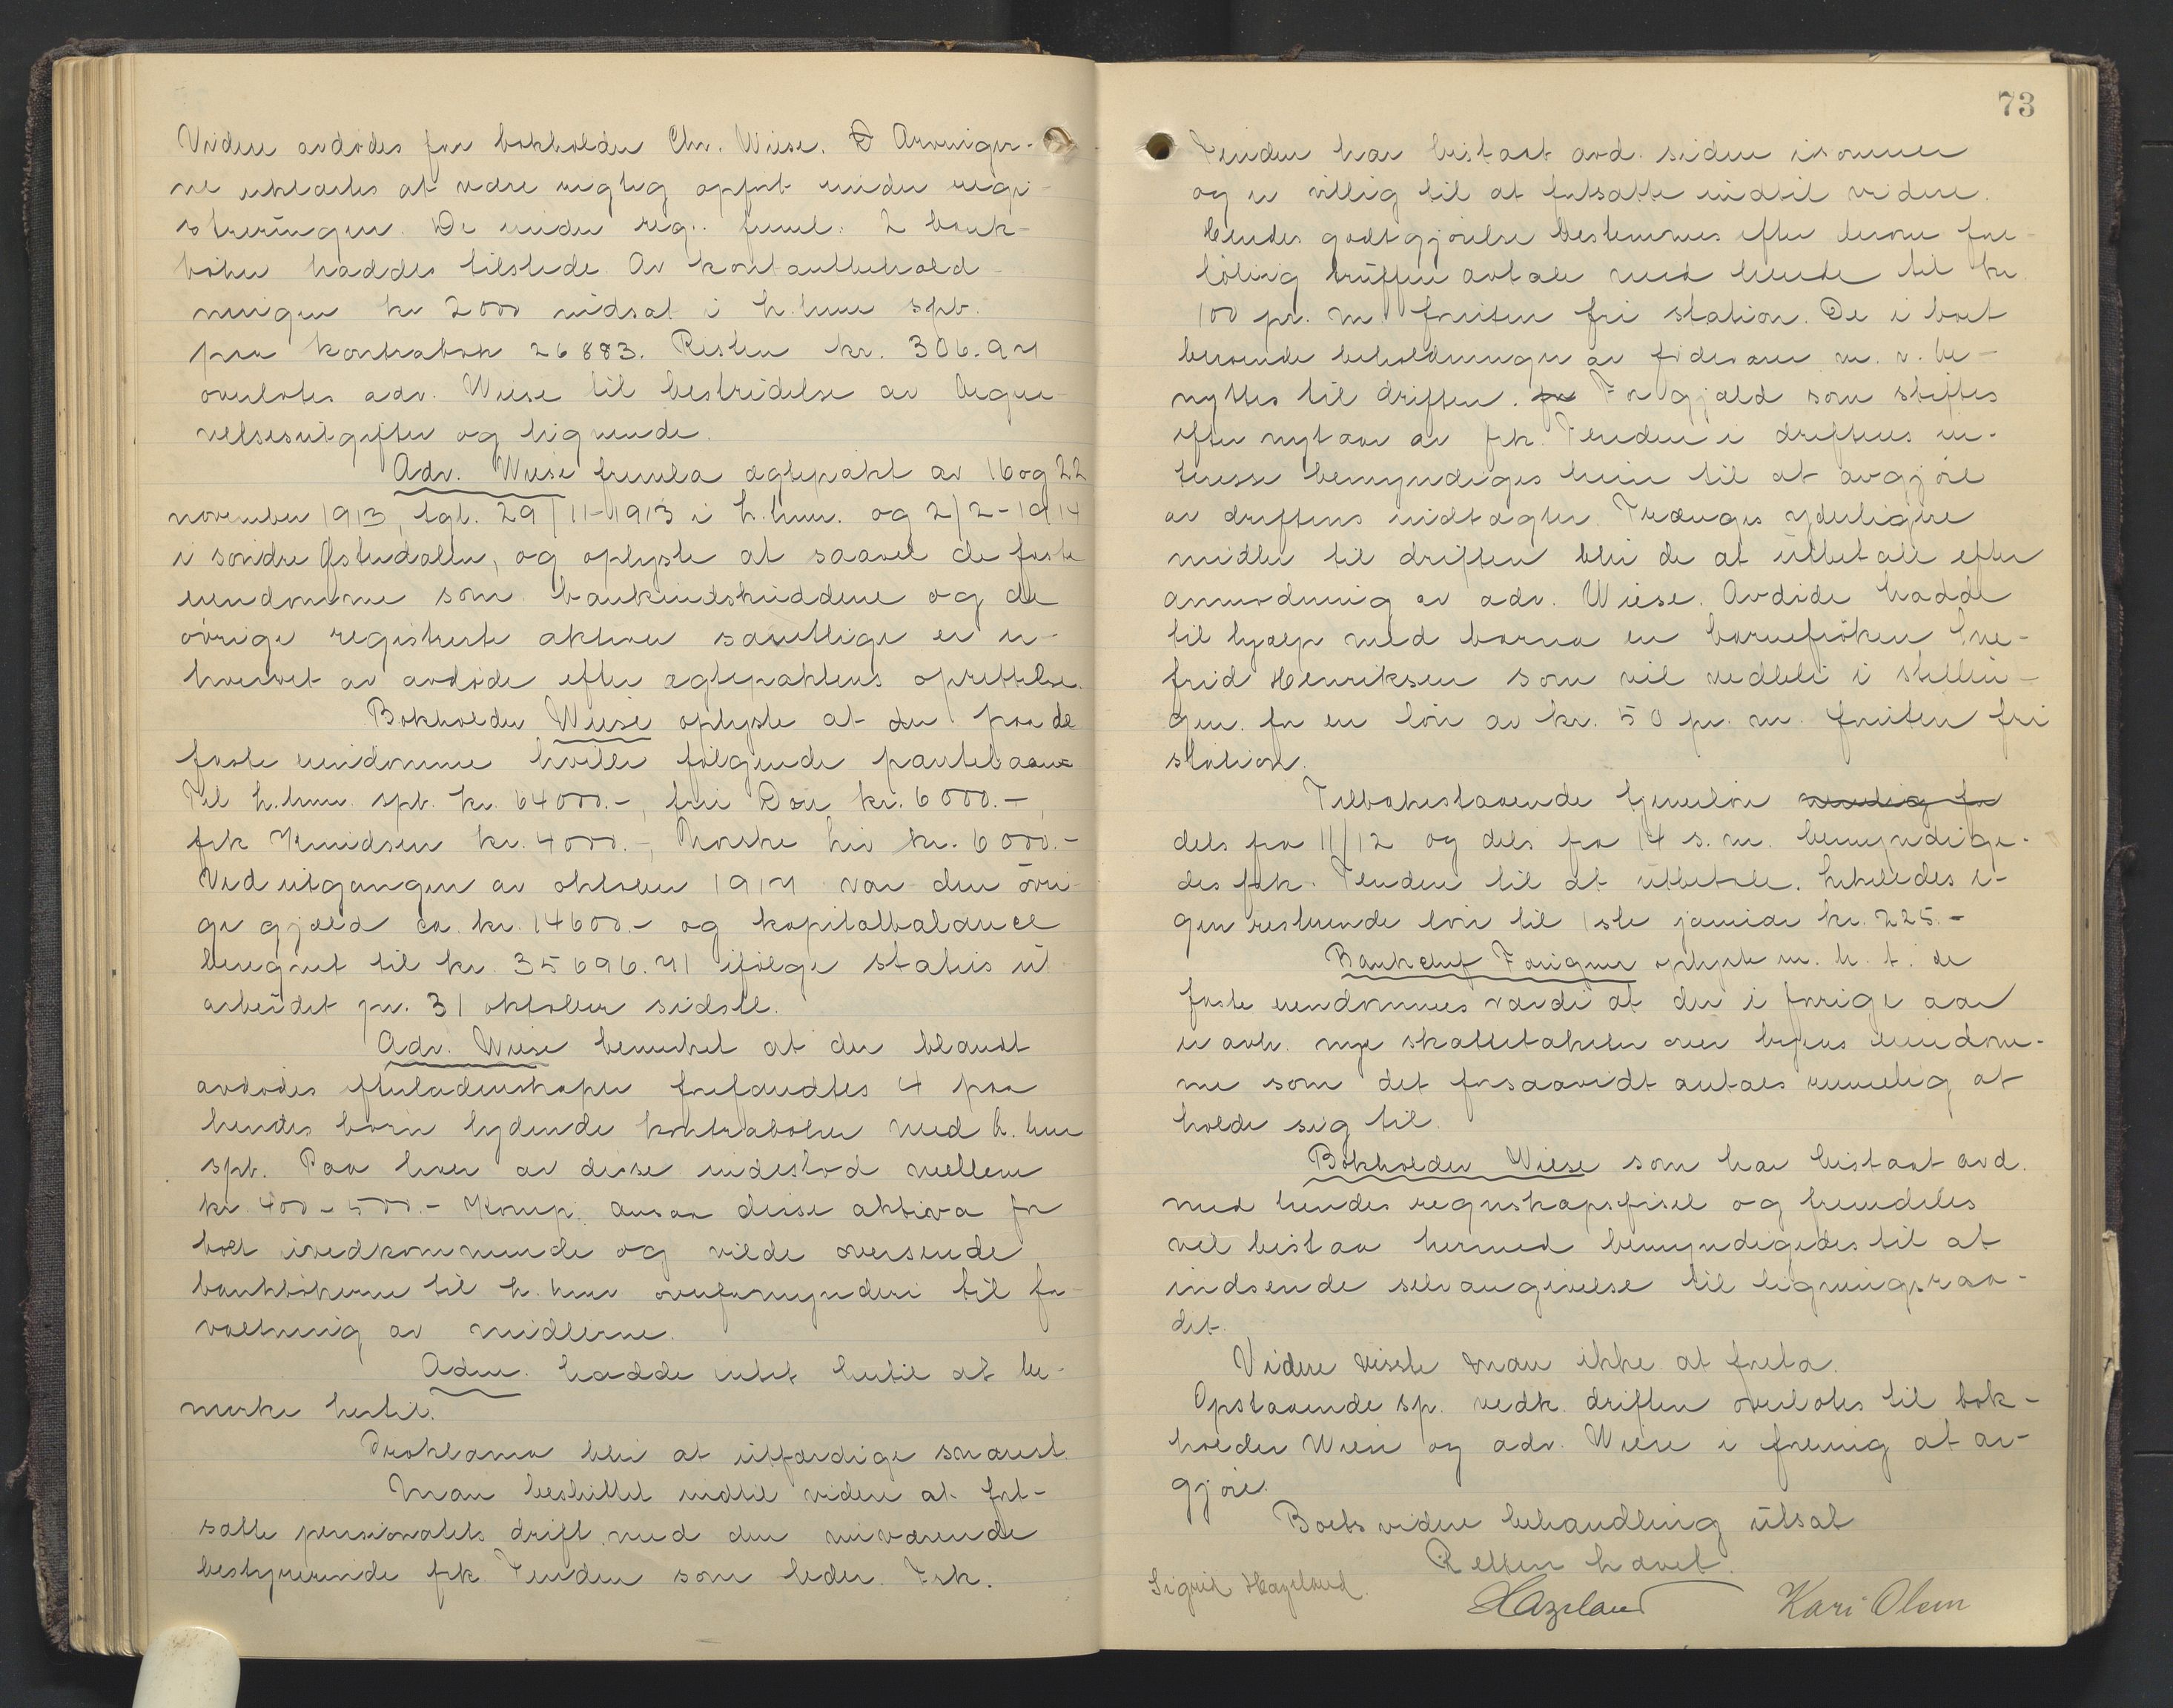 Videre avdödes far bokholder Chr. Wiese. Arvinger-
ne erklærtes at være rigtig opfört under regi-
streringen. De under reg. fremk. 2 bank-
böker haddes tilstede. Av kontantbehold-
ningen kr 2000 indsat i L.hmr spb.
paa kontrabok 26883. Resten kr. 306.94
overlotes adv. Wiese til bestridelse av begra-
velsesutgifter og lignende.
Adv. Wiese fremla ægtepakt av 16 og 22
november 1913, tgl. 29/11-1913 i L.hmr. og 2/2-1914
i söndre Østerdalen, og oplyste at saavel de faste
eiendomme som bankindskuddene og de
övrige registrerte aktiver samtlige er er-
hvervet av avdöde efter ægtepaktens oprettelse.
Bokholder Wiese oplyste at der paa de
faste eiendomme hviler fölgende pantelaan:
Til L.hmr. spb. kr. 64000.-, fru Don kr. 6000.-,
frk Knudsen kr. 4000.-, Norske liv kr. 6000.-
Ved utgangen av oktober 1914 var den övri-
ge gjæld ca. kr. 14600.- og kapitalbalance
beregnet til kr. 35696.41 ifölge status ut-
arbeidet pr. 31 oktober sidstl.
Adv. Wiese bemerket at der blandt
avdödes efterladenskaper forefandtes 4 paa
hendes barn lydende kontraböker med L. hmr
spb. Paa hver av disse indestod mellem
kr. 400 - 500.- Komp. ansaa disse aktiva for
boet uvedkommende og vilde oversende
bankbökerne til L. hmr overformynderi til for-
valtning av midlerne.
Adm. hadde intet hertil at be-
merke hertil.
Proklama blir at utfærdige snarest.
Man besluttet indtil videre at fort-
sætte pensionatets drift med den nuværende
bestyrerinde frk. Tenden som leder. Frk.
73
Tenden har bistaat avd. siden isommer
og er villig til at fortsætte indtil videre.
Hendes godtgjörelse bestemmes efter derom fore-
löbig truffen avtale med hende til kr
100 pr. m foruten fri station. De i boet
beroende beholdninger av födevarer m. v. be-
nyttes til driften. For gjæld som stiftes
efter nytaar av frk. Tenden i driftens in-
teresse bemyndiges hun til at avgjöre
av driftens indtægter. Trænges yderligere
midler til driften blir de at utbetale efter
anmodning av adv. Wiese. Avdöde hadde
til hjælp med barna en barnefröken Sne-
frid Henriksen som vil vedbli i stillin-
gen for en lön av kr. 50 pr. m. foruten fri
station.
Tilbakestaaende tjenerlön
dels fra 11/12 og dels fra 14 s. m. bemyndige-
des frk. Tenden til at utbetale. Likeledes e-
gen resterende lön til 1ste januar kr. 225.-
Bankchef Fougner oplyste m. h. t. de
faste eiendommes værdi at der i forrige aar
er avh. nye skattetakster over byens eiendom-
me som det forsaavidt antaes rimelig at
holde sig til.
Bokholder Wiese som har bistaat avd.
med hendes regnskapsförsel og fremdeles
vil bistaa hermed bemyndigedes til at
indsende selvangivelse til ligningsraa-
det.
Videre visste man ikke at foreta.
Opstaaende sp. vedk. driften overlotes til bok-
holder Wiese og adv. Wiese i forening at av-
gjöre.
Boets videre behandling utsat
Retten hævet.
Sigrid Hazeland. Hazeland Kari Olsen